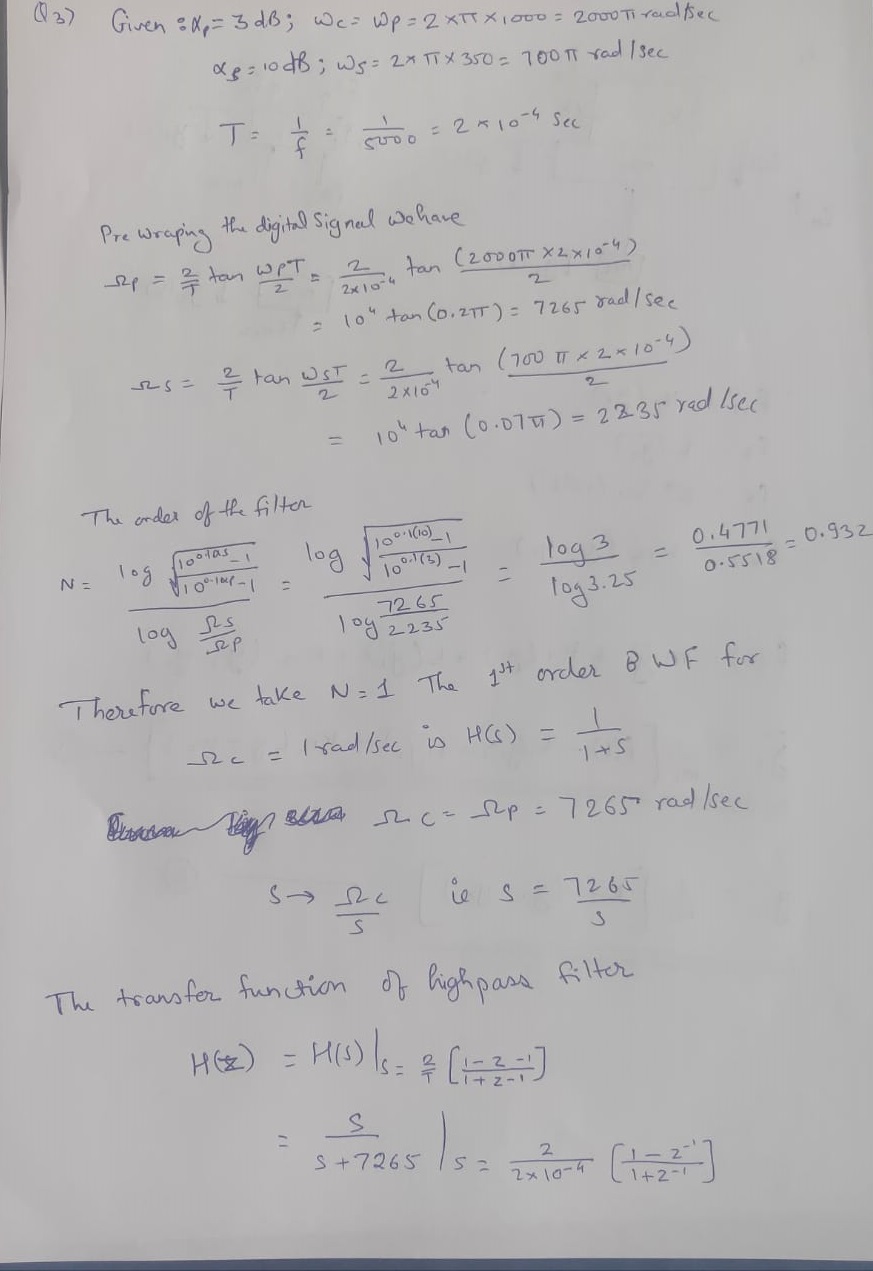 Q3) Given : αp = 3 dB ; ωc = ωp = 2×π×1000 = 2000π rad/sec
αs = 10 dB ; ωs = 2×π×350 = 700π rad/sec
T = 1/f = 1/5000 = 2×10^-4 Sec
Pre wraping the digital Signal we have
Ωp = 2/T tan ωpT/2 = 2/(2×10^-4) tan (2000π×2×10^-4)/2
= 10^4 tan (0.2π) = 7265 rad/sec
Ωs = 2/T tan ωsT/2 = 2/(2×10^-4) tan (700π×2×10^-4)/2
= 10^4 tan (0.07π) = 2235 rad/sec
The order of the filter
N = log √((10^0.1αs -1)/(10^0.1αp -1)) / log Ωs/Ωp = log √((10^0.1(10) -1)/(10^0.1(3) -1)) / log 7265/2235 = log 3/log 3.25 = 0.4771/0.5518 = 0.932
Therefore we take N = 1 The 1st order BWF for
Ωc = 1 rad/sec is H(s) = 1/(1+s)
Ωc = Ωp = 7265 rad/sec
S → Ωc/S ie s = 7265/s
The transfer function of highpass filter
H(z) = H(s)|s = 2/T [(1-z-1)/(1+z-1)]
= S/(S+7265) | s = 2/(2×10^-4) [(1-z^-1)/(1+z^-1)]